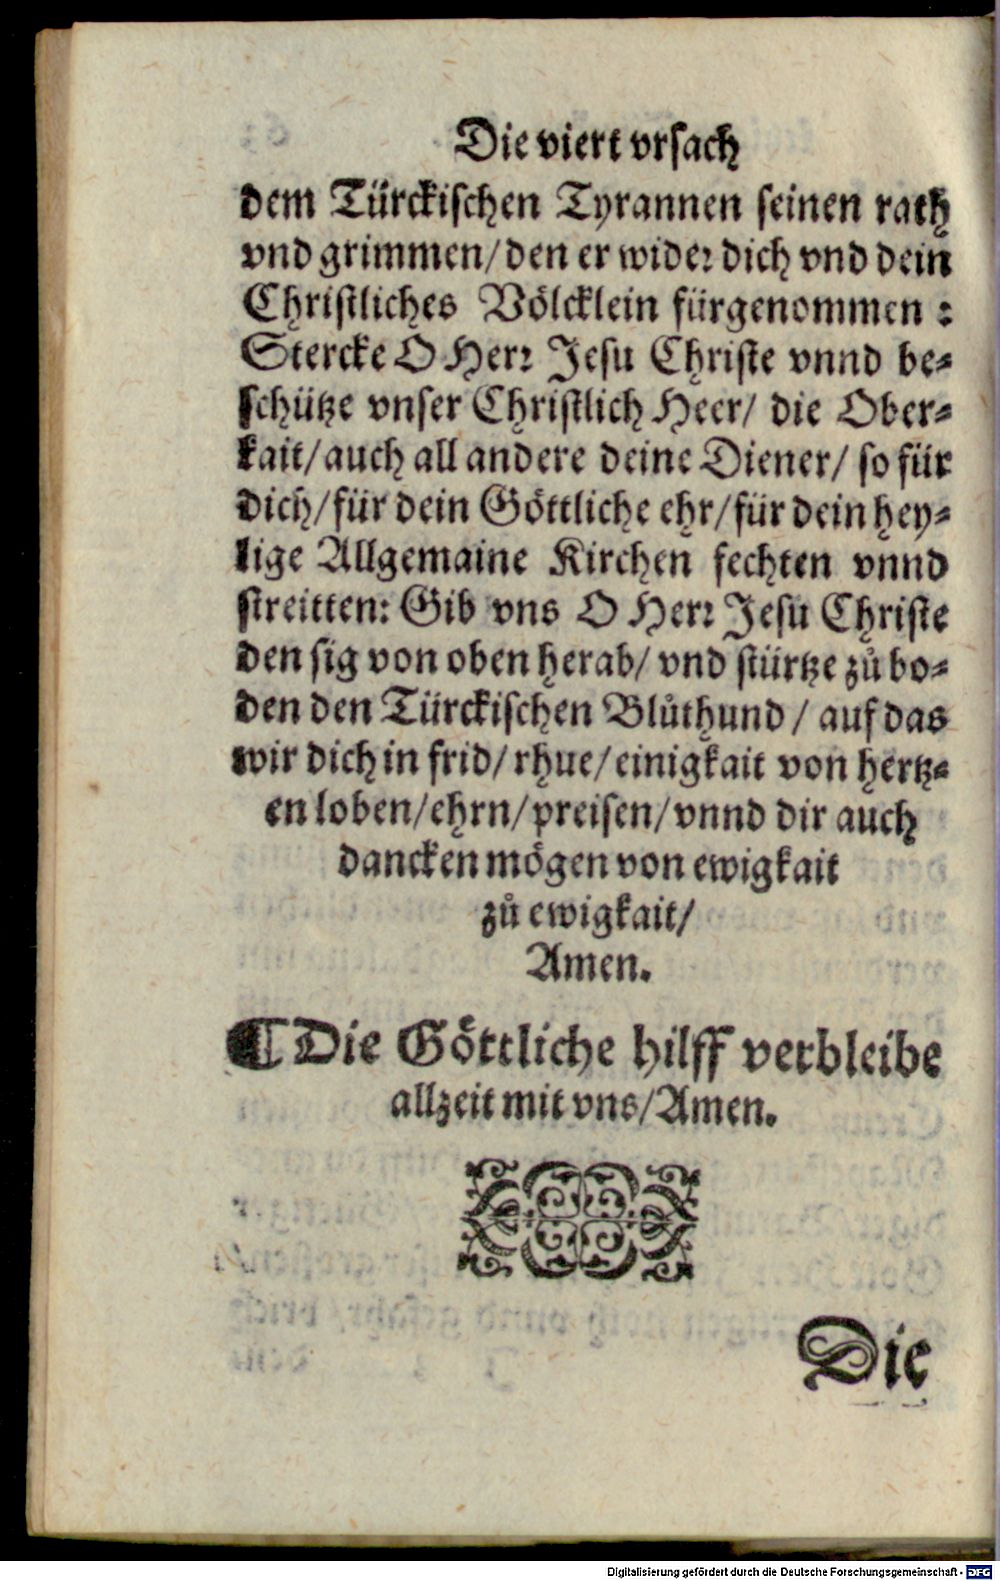 Die viert vrsach
dem Türckischen Tyrannen seinen rath
vnd grimmen/ den er wider dich vnd dein
Christliches Völcklein fürgenommen :
Stercke O Herr Jesu Christe vnnd be-
schütze vnser Christlich Heer/ die Ober-
kait/ auch all andere deine Diener/ so für
dich/ für dein Göttliche ehr/ für dein hey-
lige Allgemaine Kirchen fechten vnnd
streitten: Gib vns O Herr Jesu Christe
den sig von oben herab/ vnd stürtze zů bo-
den den Türckischen Blůthund / auf das
wir dich in frid/ rhue/ einigkait von hertz-
en loben/ ehrn/ preisen/ vnnd dir auch
dancken mögen von ewigkait
zů ewigkait/
Amen.
¶ Die Göttliche hilff verbleibe
allzeit mit vns/ Amen.
Die
Digitalisierung gefördert durch die Deutsche Forschungsgemeinschaft - DFG